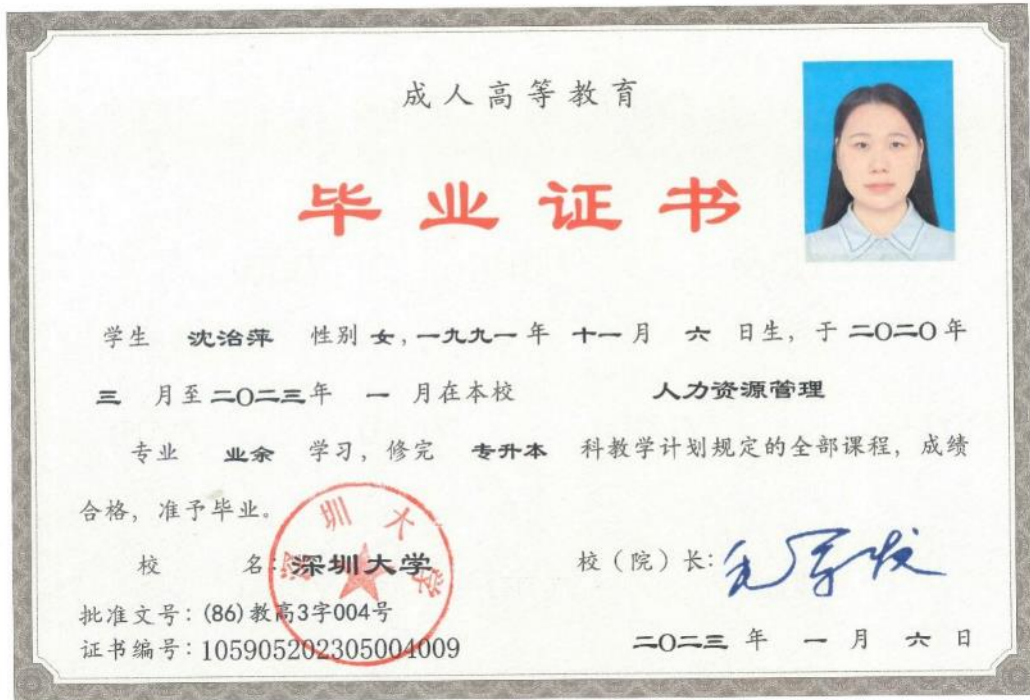 成人高等教育
毕业证书
学生 沈治萍 性别 女，一九九一 年 十一 月 六 日生，于 二〇二〇 年
三 月至 二〇二三 年 一 月在本校 人力资源管理
专业 业余 学习，修完 专升本 科教学计划规定的全部课程，成绩
合格，准予毕业。
校 名：深圳大学 校（院）长：
深圳大学
批准文号：(86)教高3字004号
证书编号：105905202305004009
二〇二三 年 一 月 六 日